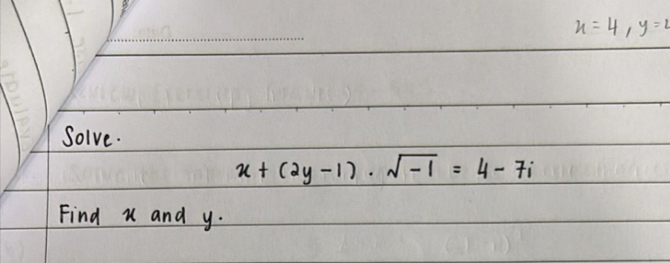 x = 4 , y =
Solve.
x + (2y - 1) . √-1 = 4 - 7i
Find x and y.